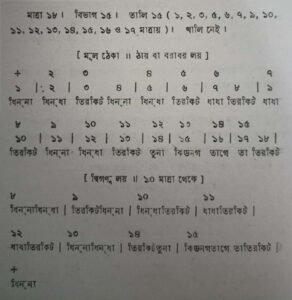 মাত্রা ১৮। বিভাগ ১৫। তালি ১৫ (১, ২, ৩, ৫, ৬, ৭, ৯, ১০,
১১, ১২, ১৩, ১৪, ১৫, ১৬ ও ১৭ মাত্রায়)। খালি নেই।
[ মূল ঠেকা ॥ ঠায় বা বরাবর লয় ]
+ ২ ৩ ৪ ৫ ৬ ৭
১ | ২ | ৩ ৪ | ৫ | ৬ | ৭ ৮ | ৯
ধিন্‌না ধিন্‌ধা তিরকিট ধিন্‌ধা তিরকিট ধাধা তিরকিট ধিন্‌ধা
৮ ৯ ১০ ১১ ১২ ১৩ ১৪ ১৫
১০ | ১১ | ১২ | ১৩ | ১৪ | ১৫ | ১৬ | ১৭ | ১৮ |
তিরকিট ধিন্‌না ধিন্‌ধা তিরকিট তুনা কিড়নগ তাগে তা তিরকিট
[ দ্বিগুণ লয় ॥ ১০ মাত্রা থেকে ]
৮ ৯ ১০ ১১
ধিন্‌নাধিন্‌ধা | তিরকিটধিন্‌না | ধিন্‌ধাতিরকিট | ধাধাতিরকিট |
১২ ১৩ ১৪ ১৫
ধাধাতিরকিট | ধিন্‌নাধিন্‌ধা | তিরকিটতুনা | কিড়নগতাগে তাতিরকিট |
+
ধিন্‌না